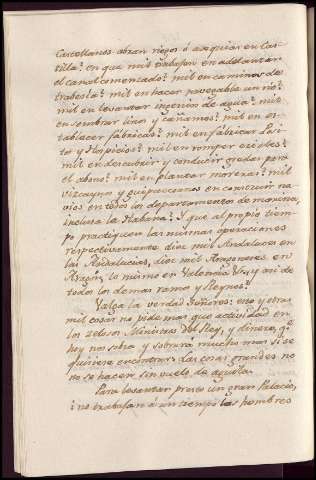 Castellanos abran riegos ó azequias en Cas-
tilla? en que mil trabajen en adelantar
el canal comenzado? mil en caminos de
trabesía? mil en hacer navegable un rio?
mil en levantar ingenio de agua? mil
en sembrar lino y cañamos? mil en es-
tablecer fábricas? mil en fábricar Posi-
to y Hospicios? mil en romper eriales?
mil en descubrir y conducir gredas para
el abono? mil en plantar moreras? mil
vizcaynos y guipuzcoanos en construir na-
vios en todos los departamentos de marina,
inclusa la Habana? Y que al propio tiem-
po practiquen las mismas operaciones
respectivamente diez mil Andaluces en
las Andalucias, diez mil Aragoneses en
Aragon, lo mismo en Valencia &a, y asi de
todos los demas ramos y Reynos?
Valga la verdad Señores: eso y otras
mil cosas no pide mas que actividad en
los zelosos Ministros del Rey, y dinero, qe
hoy nos sobra y sobrará mucho mas si se
quisiere encontrar: las cosas grandes no
no se hacen sin vuelo de aguila.
Para levantar presto un gran Palacio,
¿no trabajan á un tiempo los hombres